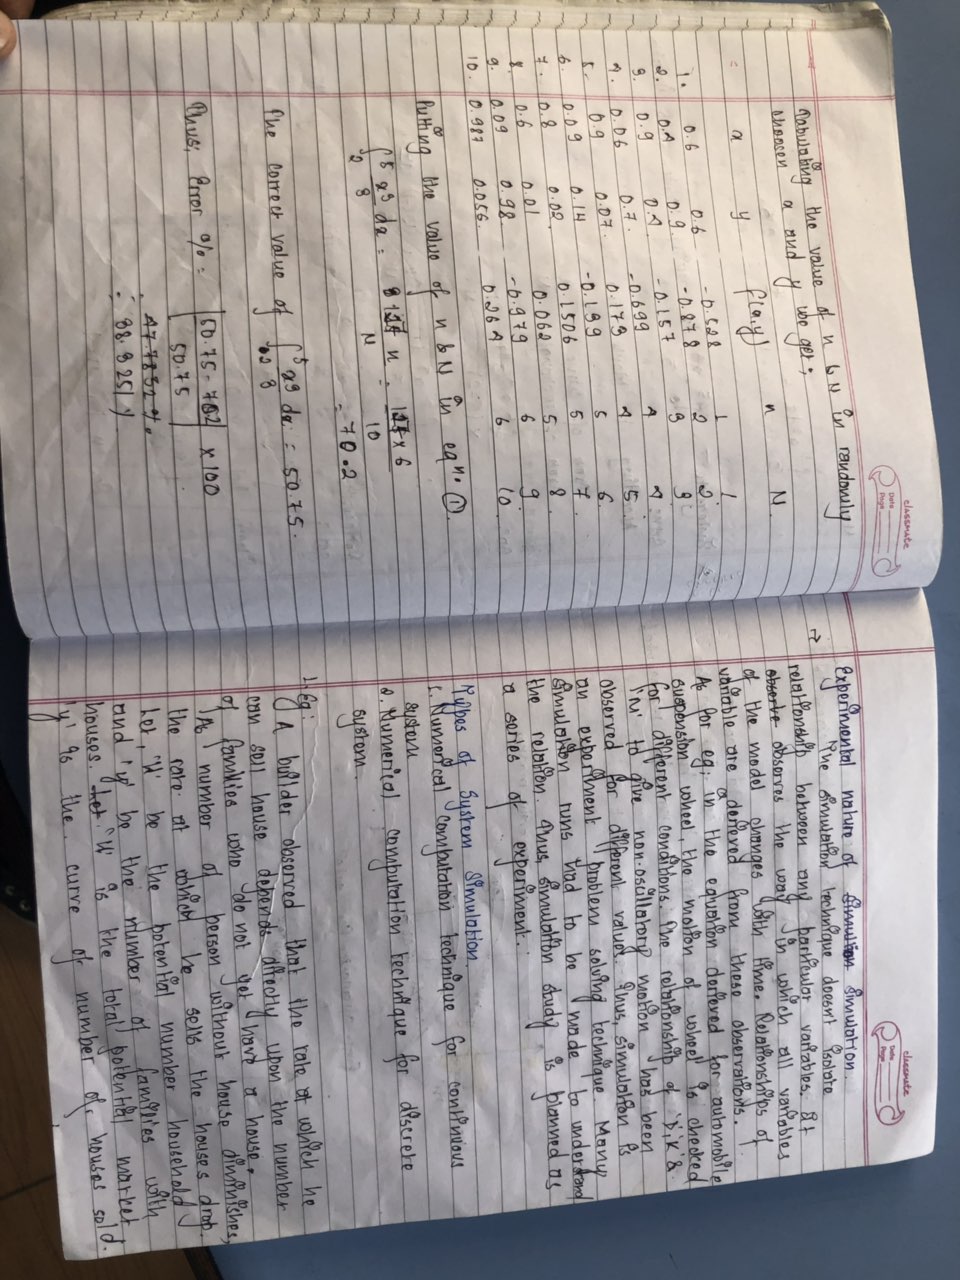 classmate
Date
Page
Tabulating the value of n & N in randomly
choosen x and y we get;
x y f(x,y) n N.
1. 0.6 0.6 -0.528 1 1
2. 0.4 0.9 -0.878 2 2
3. 0.9 0.4 -0.157 3 3
4. 0.06 0.7 -0.699 4 4
5. 0.9 0.07 0.179 4 5
6. 0.09 0.14 -0.199 5 6
7. 0.8 0.02 0.1506 5 7
8. 0.6 0.01 0.062 5 8
9. 0.09 0.98 -0.979 6 9
10. 0.987 0.056 0.264 6 10
Putting the value of n & N in eqn. ①
∫₂⁵ x³ dx = n = x 6
N 10
= 70.2
The correct value of ∫₂⁵ x³ dx = 50.75.
Thus, Error % = |50.75 - 70.2| x 100
50.75
= 38.3251 %
classmate
Date
Page
Experimental nature of simulation simulation.
→ The simulation technique doesnt isolate
relationship between any particular variables. It
observe observes the way in which all variables
of the model changes with time. Relationships of
variable are derived from these observations.
As for eg: in the equation derived for automobile
suspension wheel, the motion of wheel is checked
for different conditions. The relationship of 'D', 'K' &
'M' to give non-oscillatory motion has been
observed for different values. Thus, simulation is
an experiment problem solving technique. Many
simulation runs had to be made to understand
the relation. Thus, simulation study is planned as
a series of experiment.
Types of System Simulation.
1. Numerical Computation technique for continuous
system
2. Numerical computation technique for discrete
system.
1. Eg: A builder observed that the rate at which he
can sell house depends directly upon the number
of families who do not yet have a house.
As number of person without house diminishes,
the rate at which he sells the houses drop.
Let, 'H' be the potential number household
and 'y' be the number of families with
houses. Let 'H' is the total potential market
'y' is the curve of number of houses sold.